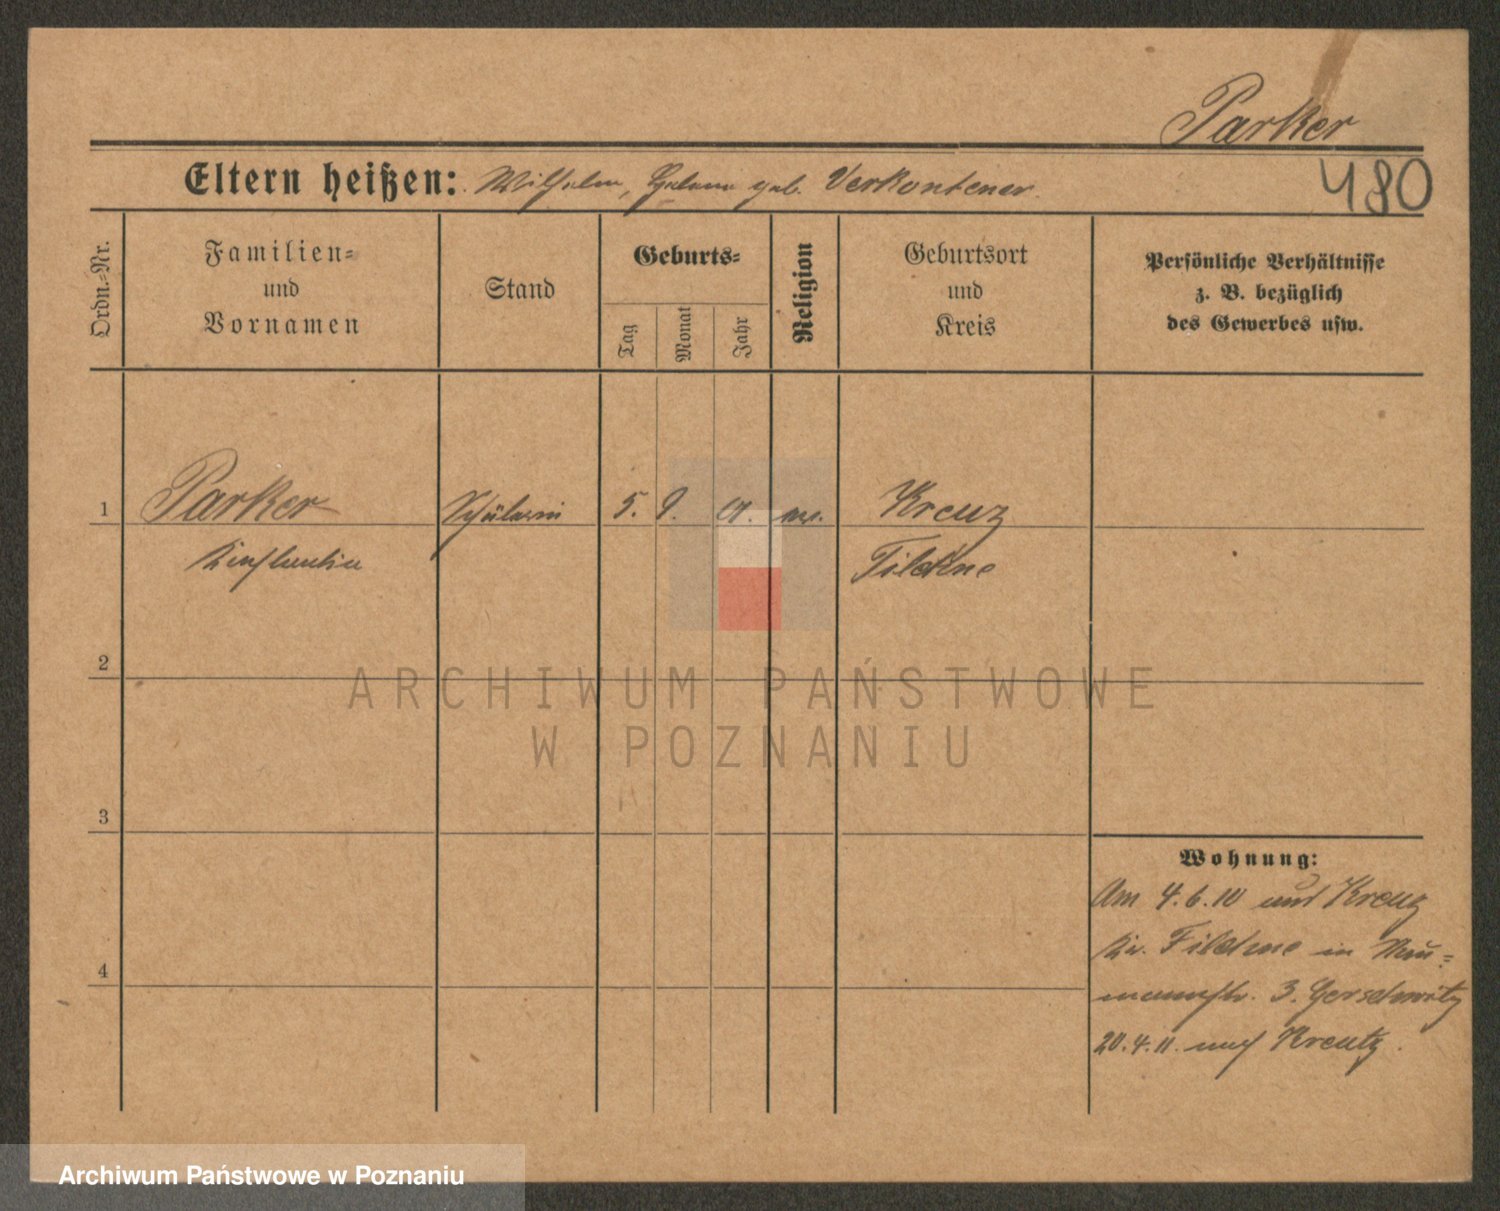 Parker
480
Eltern heißen: Wilhelm, geb. Verkontener.
Ordn.-Nr.
Familien-
und
Vornamen
Stand
Geburts-
Tag
Monat
Jahr
Religion
Geburtsort
und
Kreis
Persönliche Verhältnisse
z. B. bezüglich
des Gewerbes usw.
1
Parker
Schülerin
5. 9.
Kreuz
Filehne
2
3
4
Wohnung:
Am 4.6.10 Kreuz
Kr. Filehne in Nau-
mannstr. 3. Gerschwitz
20.4.11. nach Kreutz.
ARCHIWUM PAŃSTWOWE
W POZNANIU
Archiwum Państwowe w Poznaniu